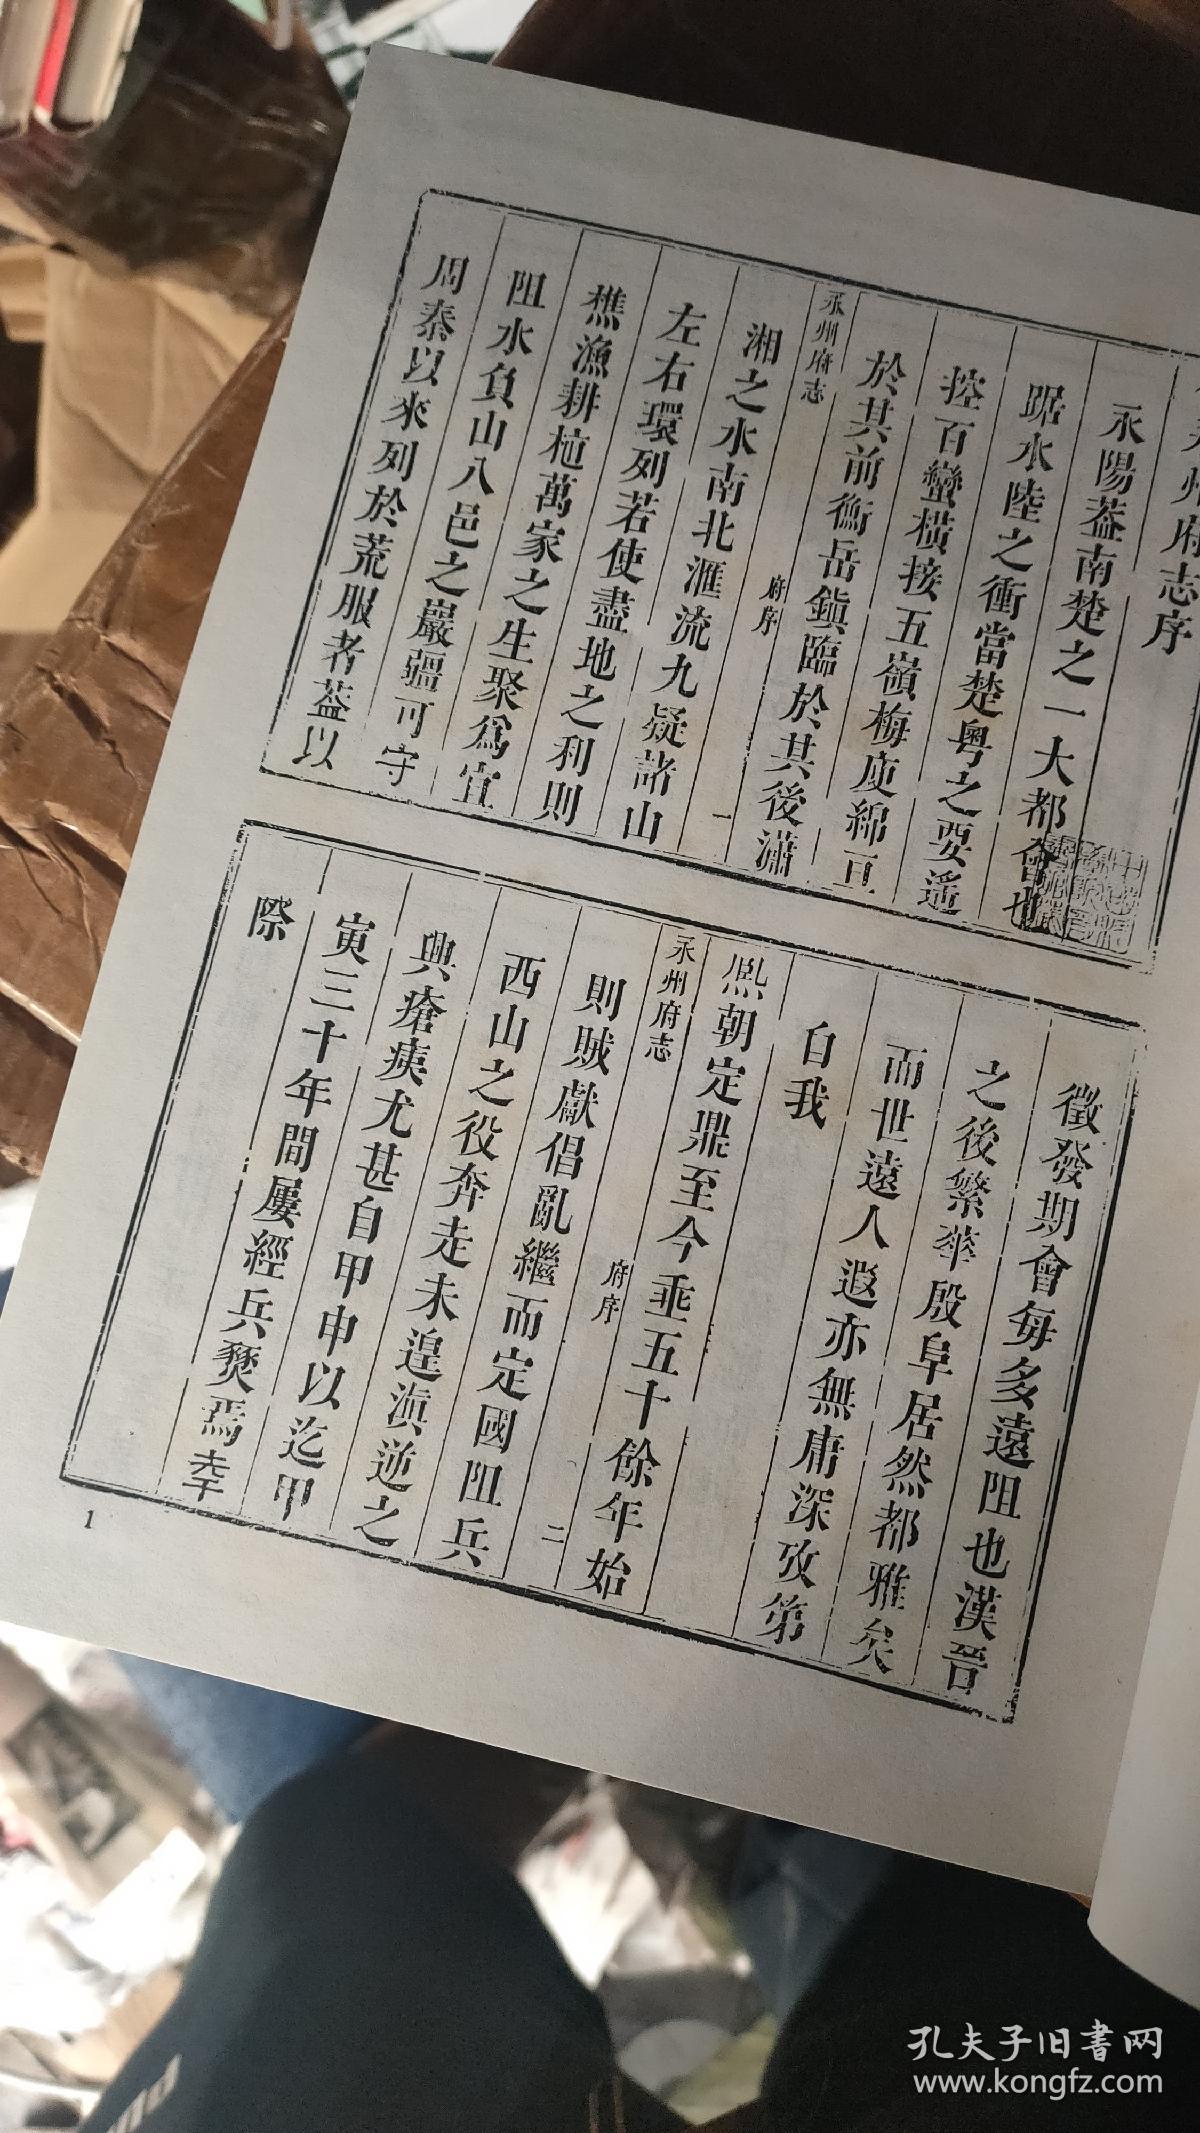 永州府志序
永陽葢南楚之一大都會也
踞水陸之衝當楚粵之要遥
控百蠻橫接五嶺梅庾綿亘
於其前衡岳鎭臨於其後瀟
永州府志
府序
一
湘之水南北滙流九疑諸山
左右環列若使盡地之利則
樵漁耕柂萬家之生聚爲宜
阻水負山八邑之巖疆可守
周秦以來列於荒服者葢以
徵發期會每多遠阻也漢晉
之後繁華殷阜居然都雅矣
而世遠人遐亦無庸深攷第
自我
熈朝定鼎至今垂五十餘年始
永州府志
府序
二
則賊獻倡亂繼而定國阻兵
西山之役奔走未遑滇逆之
興瘡痍尤甚自甲申以迄甲
寅三十年間屢經兵燹焉幸
際
1
孔夫子旧書网
www.kongfz.com